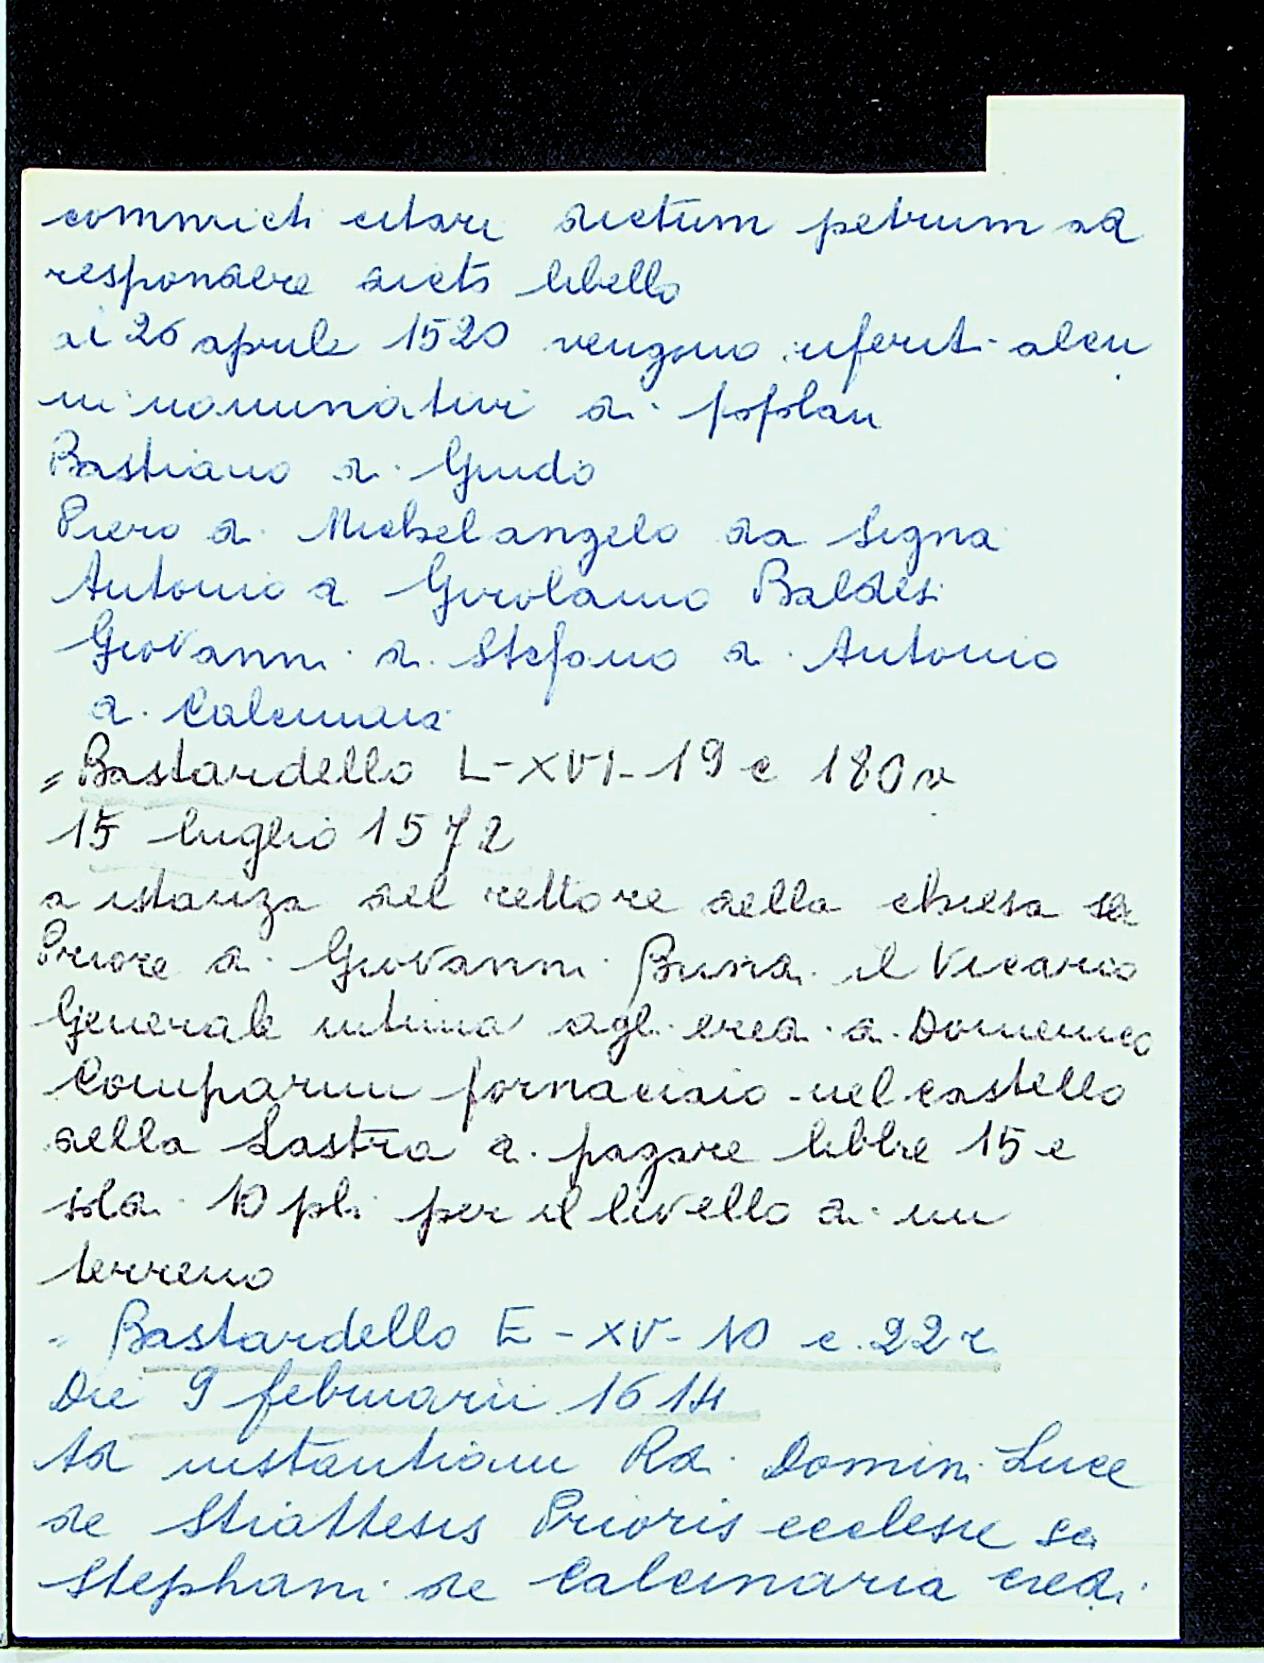 commicti citari dictum petrum ad
respondere dicto libello
ai 26 aprile 1520 vengono riferiti alcu
ni nominativi di popolani
Bastiano di Guido
Piero di Michelangelo da Signa
Antonio di Girolamo Baldesi
Giovanni di Stefano di Antonio
di Calcinaia
= Bastardello L-XVI-19 c 180v
15 luglio 1572
a istanza del rettore della chiesa
Priore di Giovanni il Vicario
Generale intima agli eredi di Domenico
Comparini fornaciaio nel castello
della Lastra di pagare libbre 15 e
soldi 10 pli per il livello di un
terreno
= Bastardello E-XV-10 c. 22r
Die 9 februarii 1614
Ad instantiam Rdi Domini Luce
de Stiattesis Prioris ecclesie
Stephani de Calcinaria eredi